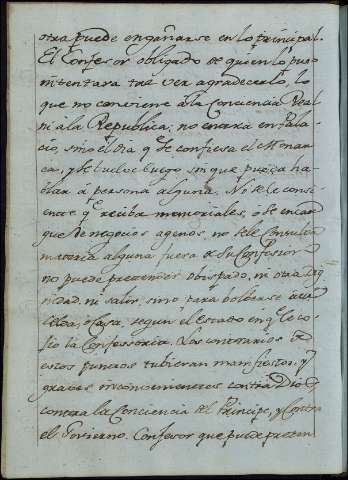 otra puede engañarse en lo principal.
El Confesor obligado de quien lo puso
intentara tal vez agradecerlo, lo
que no conviene à la Conciencia Real
ni à la Republica; no entra en Pala-
cio, sino el dia q̃ se confiesa el Monar
ca, y se buelve luego sin que pueda ha
blar à persona alguna. No se le consi
ente q̃ reciba memoriales, o se encar
gue de negocios agenos, no se le Consulta
materia alguna fuera de su Confesion
no puede pretender obispado, ni otra Dig
nidad, ni salir, sino para bolverse a su
Celda, o Casa, segun el estado en q̃ le co-
gio la Confessoria. Los contrarios de
estos puntos tubieran manifiestos, y
graves inconvenientes contra Dios,
contra la Conciencia del Principe, y Contra
el Govierno. Confesor que puede preten